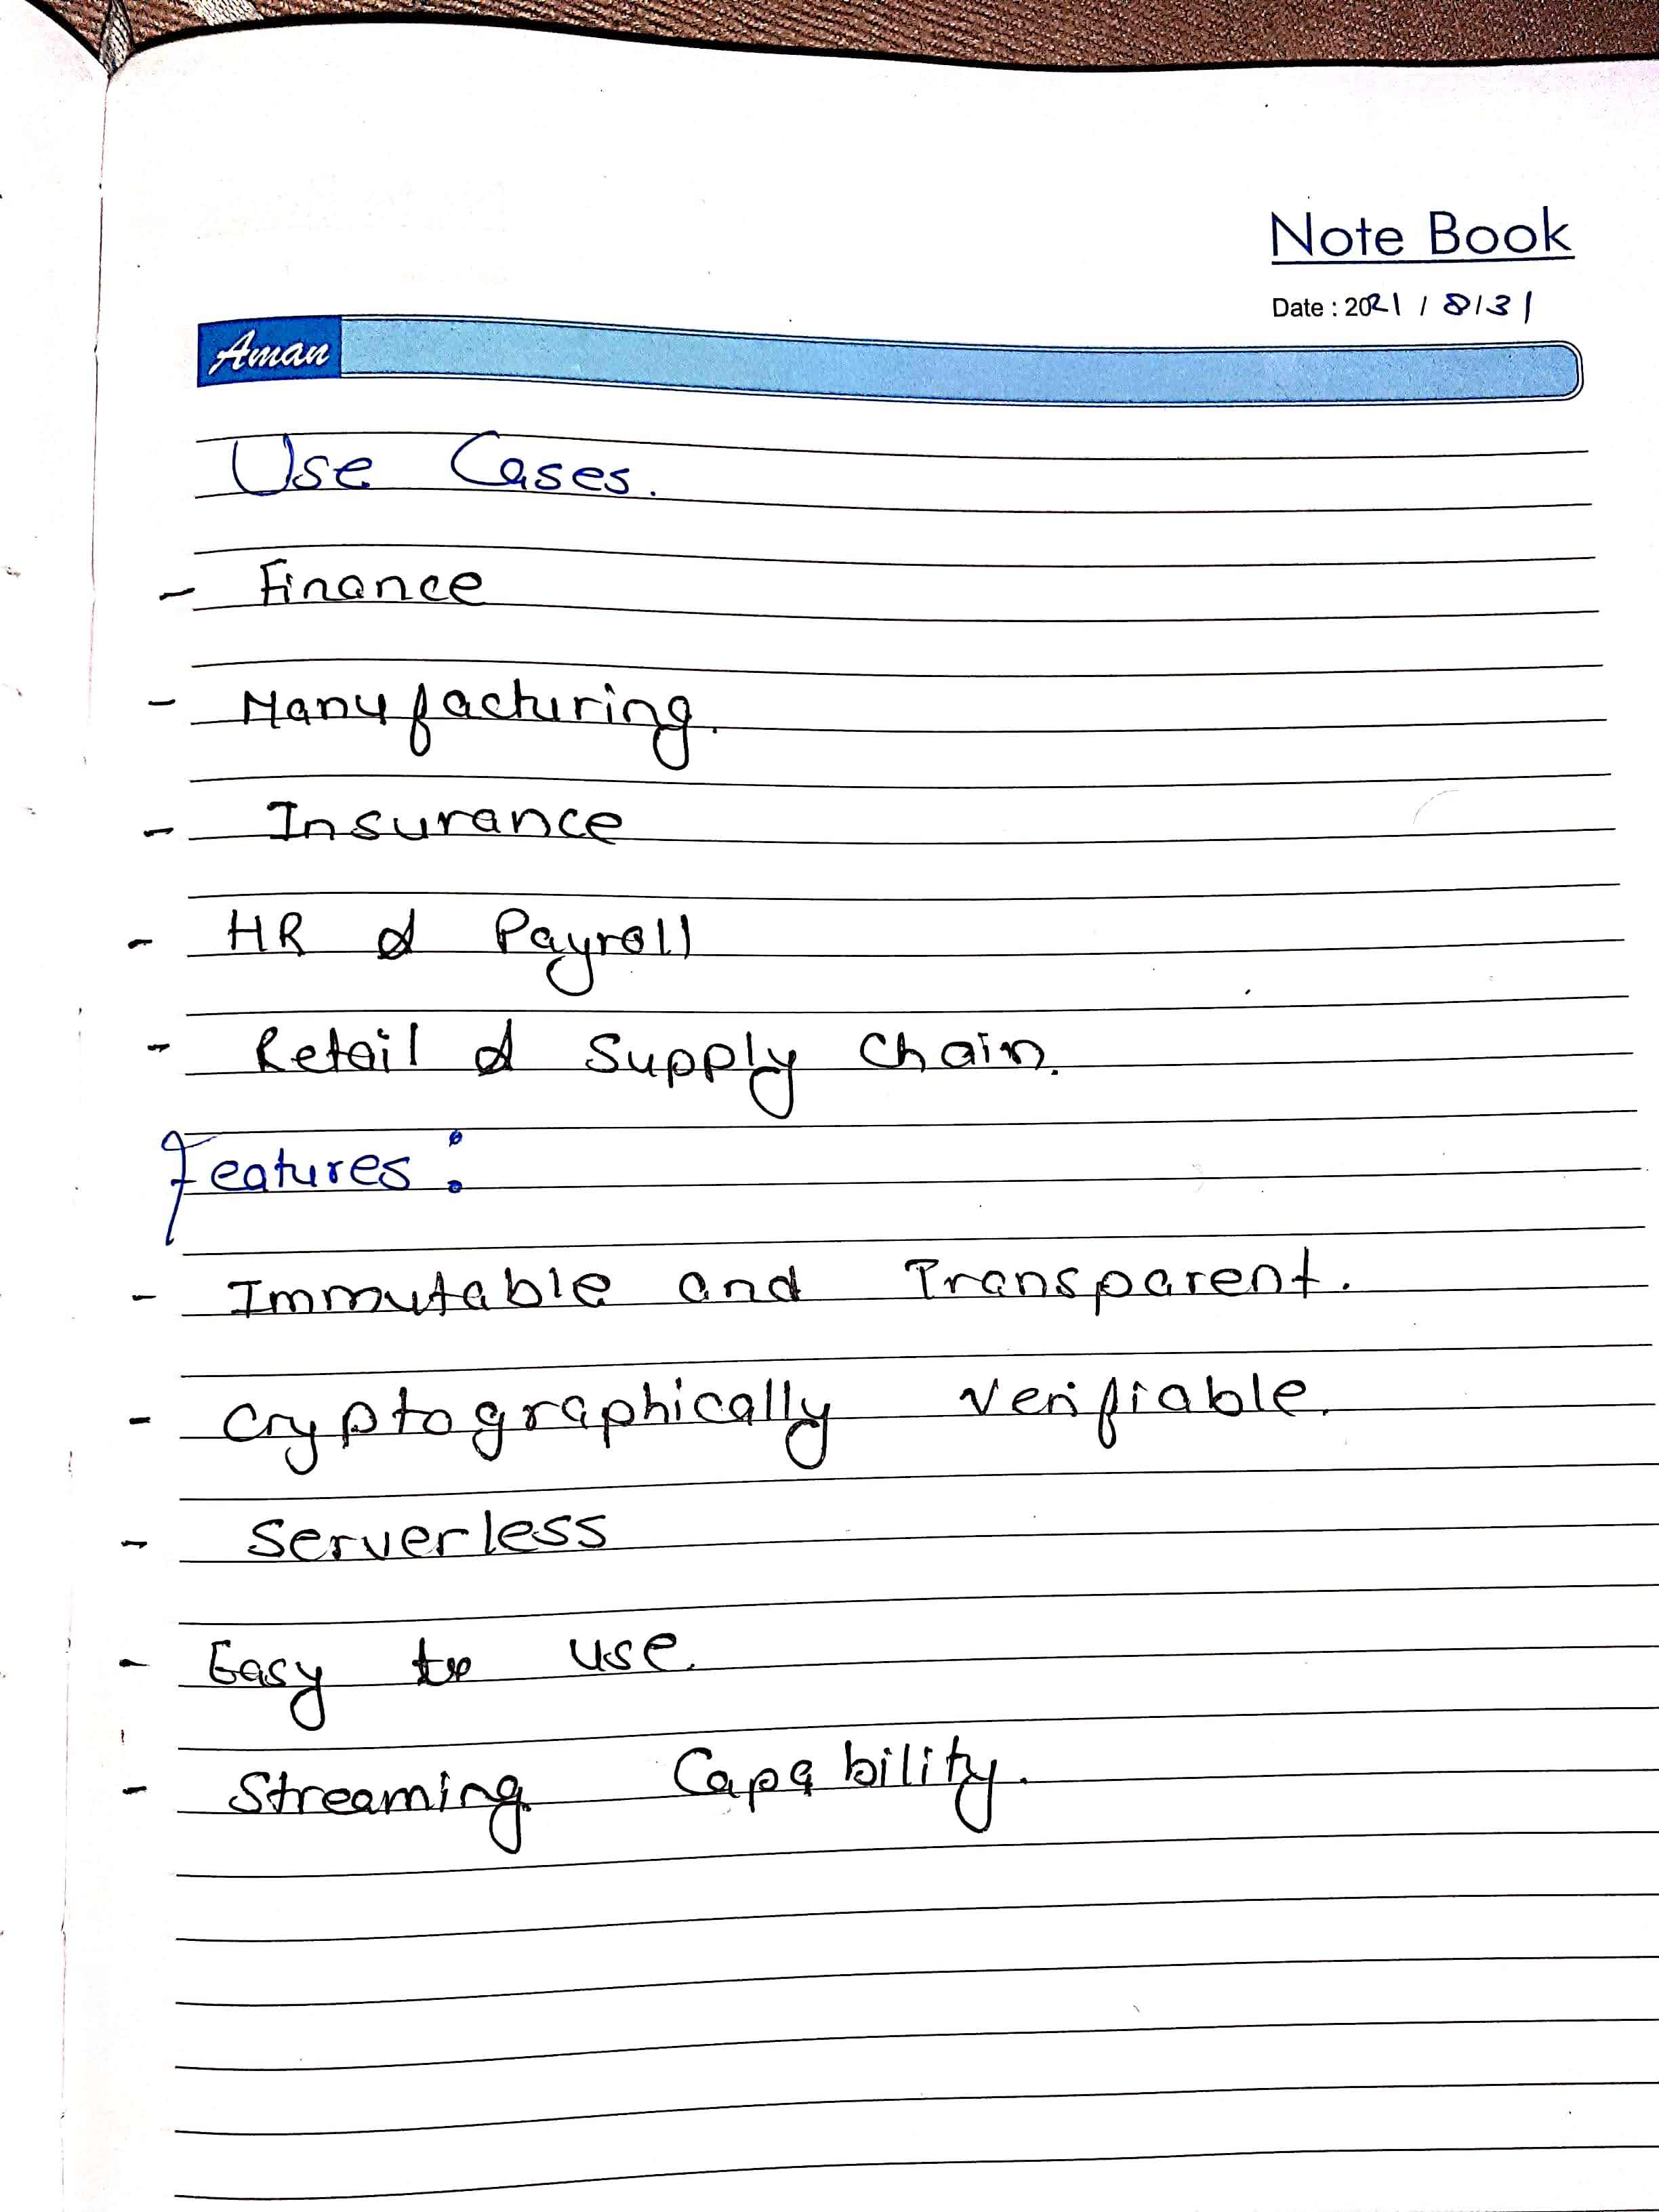 Note Book
Date : 2021 / 8/31
Aman
Use Cases.
- Finance
- Manufacturing.
- Insurance
- HR & Payroll
- Retail & Supply Chain.
Features:
- Immutable and Transparent.
- Cryptographically verifiable.
- Serverless
- Easy to use.
- Streaming Capability.